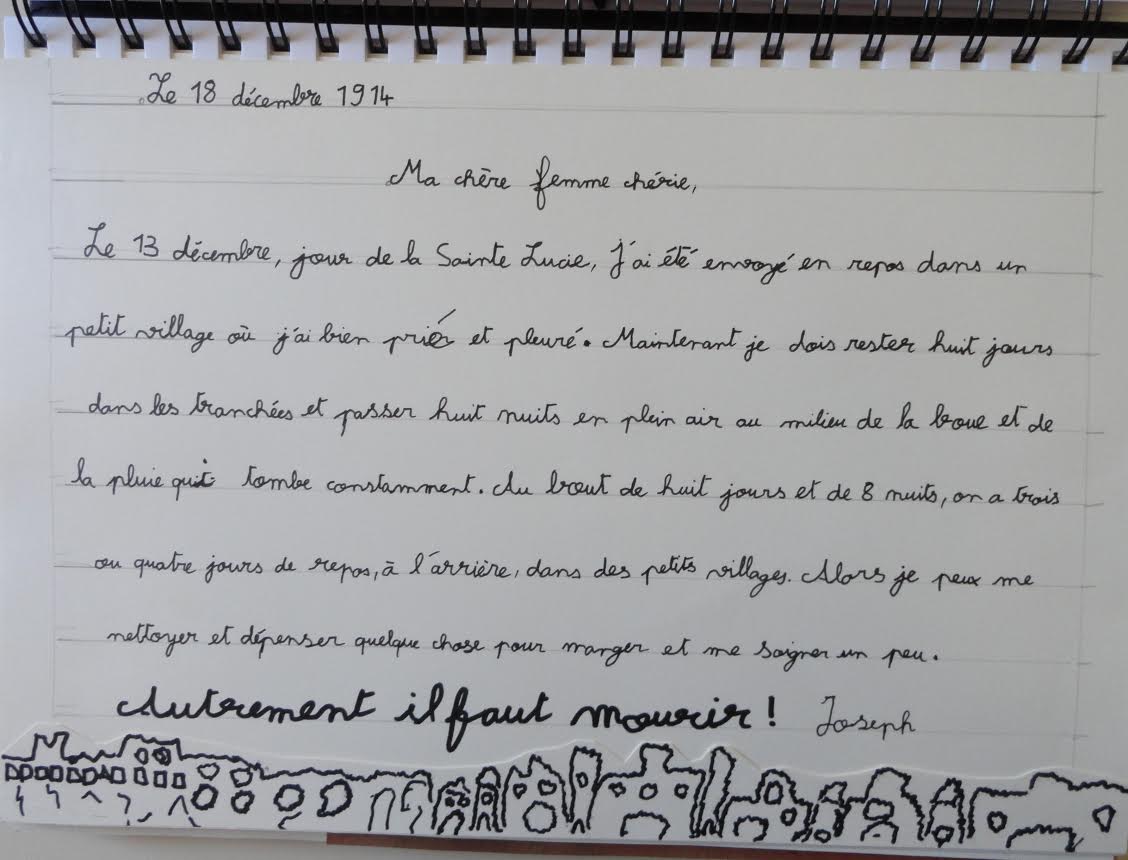 Le 18 décembre 1914
Ma chère femme chérie,
Le 13 décembre, jour de la Sainte Lucie, j'ai été envoyé en repos dans un
petit village où j'ai bien prié et pleuré. Maintenant je dois rester huit jours
dans les tranchées et passer huit nuits en plein air au milieu de la boue et de
la pluie qui tombe constamment. Au bout de huit jours et de 8 nuits, on a trois
ou quatre jours de repos, à l'arrière, dans des petits villages. Alors je peux me
nettoyer et dépenser quelque chose pour manger et me soigner un peu.
Autrement il faut mourir ! Joseph